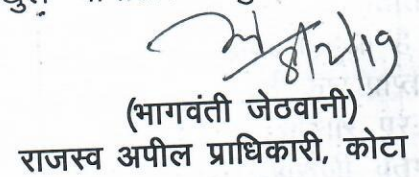 8/2/19
(भागवंती जेठवानी)
राजस्व अपील प्राधिकारी, कोटा